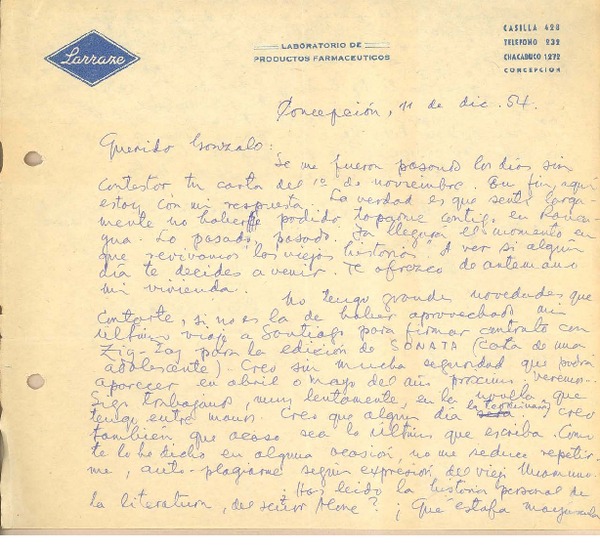 Larraze
LABORATORIO DE
PRODUCTOS FARMACEUTICOS
CASILLA 428
TELEFONO 232
CHACABUCO 1272
CONCEPCION
Concepción, 11 de dic. 54.
Querido Gonzalo:
Se me fueron pasando los días sin
contestar tu carta del 1º de noviembre. En fin, aquí
estoy con mi respuesta. La verdad es que sentí larga-
mente no haber podido toparme contigo en Ranca-
gua. Lo pasado, pasado. Ya llegará el momento en
que revivamos "los viejos historias". A ver si algún
día te decides a venir. Te ofrezco de antemano
mi vivienda.
No tengo grandes novedades que
contarte, si no es la de haber aprovechado mi
último viaje a Santiago para firmar contrato con
Zig-Zag para la edición de SONATA (carta de una
adolescente). Creo sin mucha seguridad que podrá
aparecer en abril o mayo del año próximo. Veremos..
Sigo trabajando, muy lentamente, en la novela que
tengo entre manos. Creo que algún día la terminaré, creo
también, que acaso sea la última que escriba. Como
te lo he dicho en alguna ocasión, no me seduce repetir-
me, auto-plagiarme según expresión del viejo Unamuno.
¿Has leído la historia personal de
la literatura, del señor Alone? ¡Qué estafa mayúscula